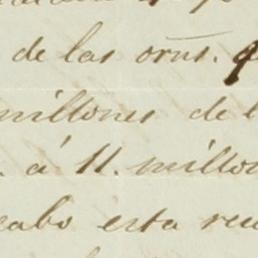 de las orns.
millones de l
á 11. millon
cabo esta rec